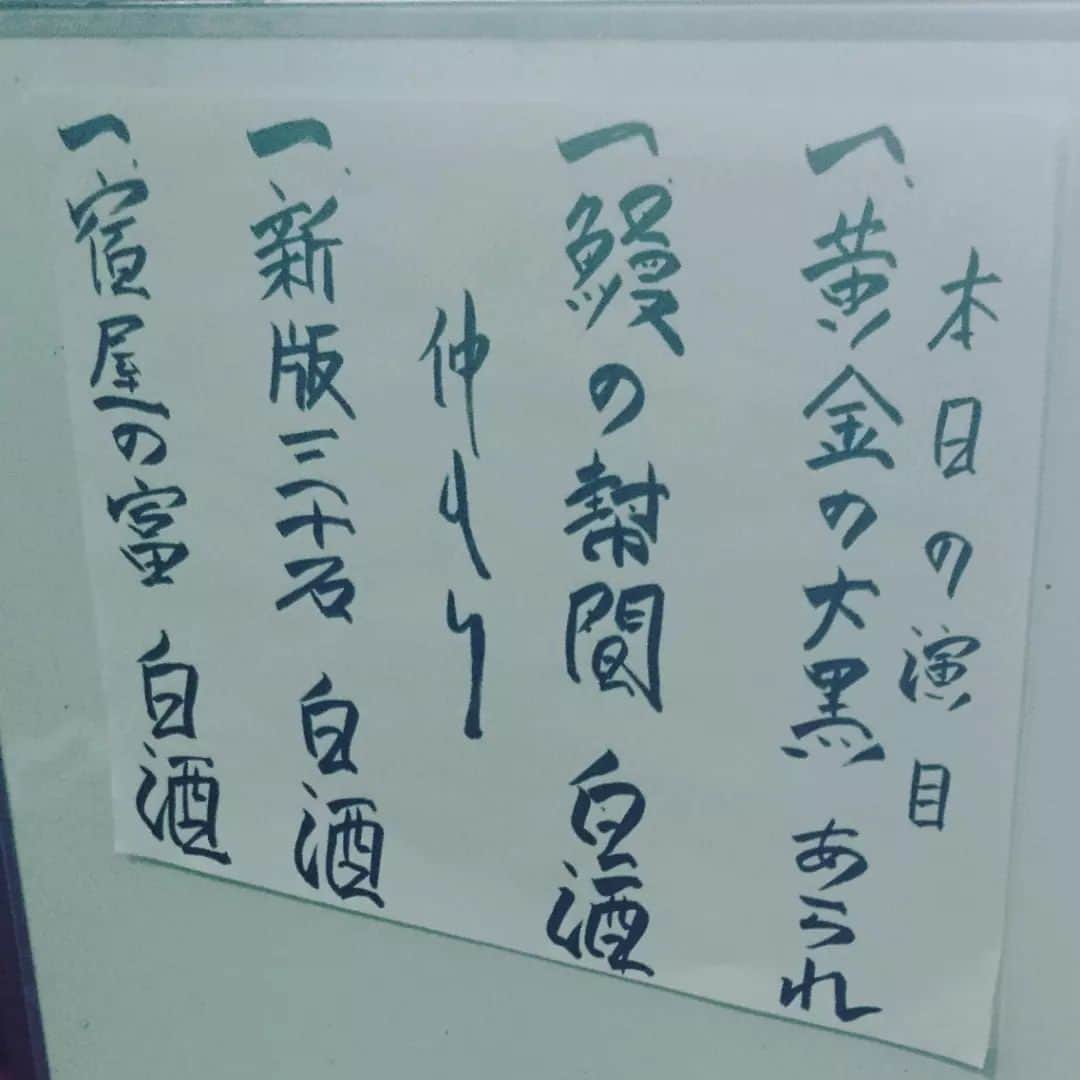 本日の演目
一、黄金の大黒 あられ
一、鰻の幇間 白酒
仲入り
一、新版三十石 白酒
一、宿屋の富 白酒